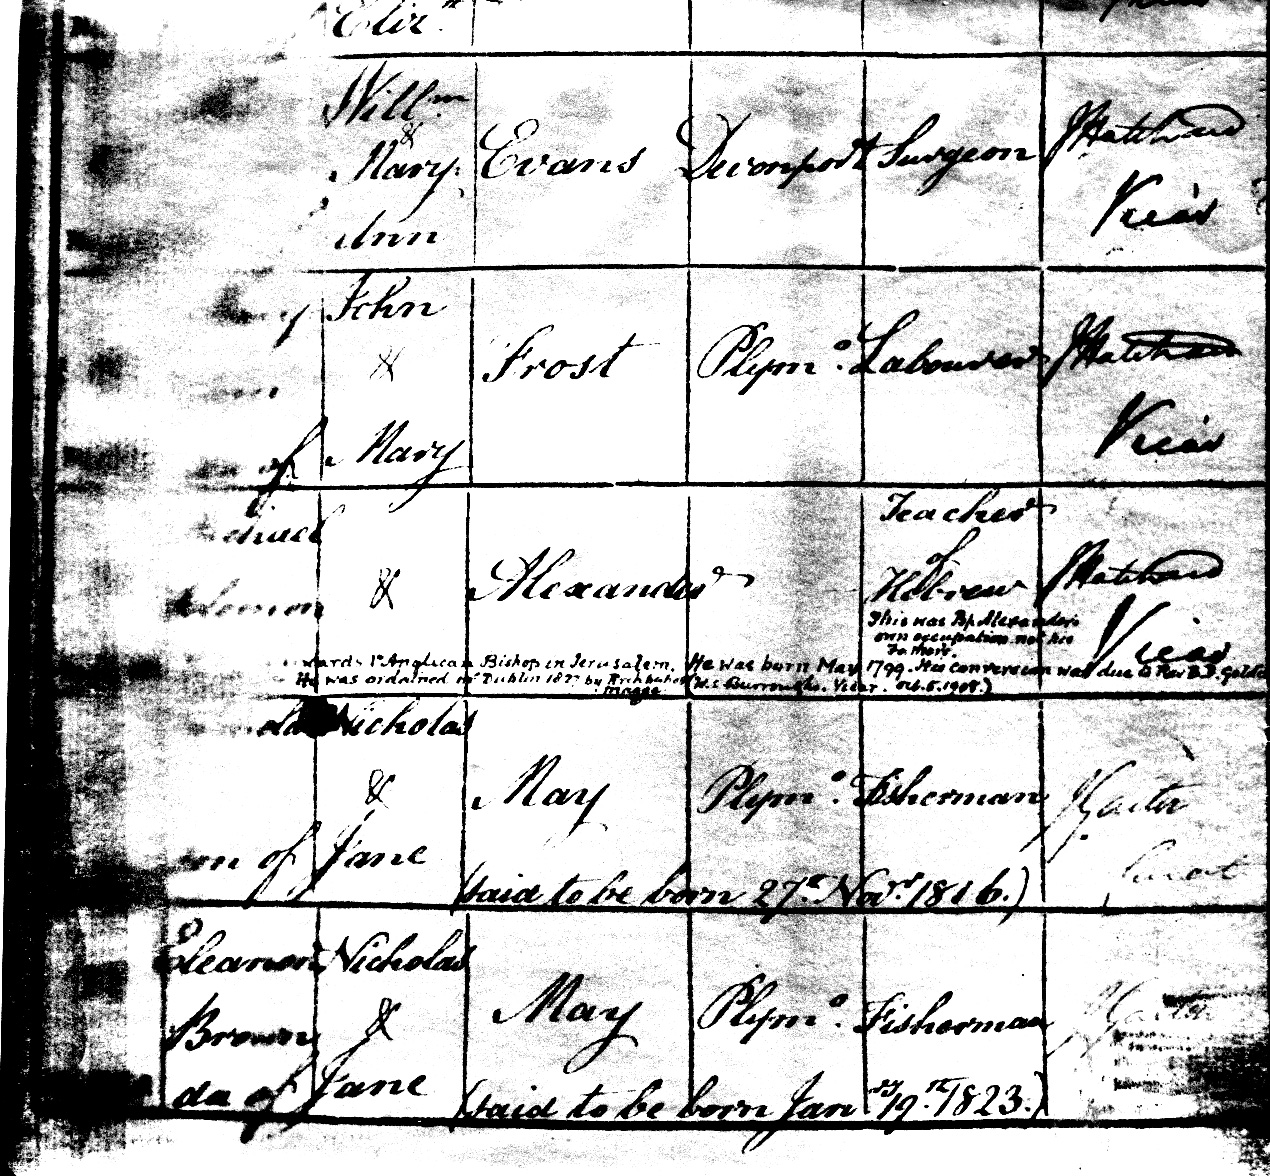 Eliz.th
Will.m
&
Mary Evans Devonport Surgeon J Hatchard
Ann Vicar
John
& Frost Plym.o Labourer J Hatchard
Vicar
of Mary
Teacher
of
& Alexander Hebrew J Hatchard
This was Bp. Alexander's
own occupation not his
Father's. Vicar
wards 1st Anglican Bishop in Jerusalem. He was born May 1799. His conversion was due to Rev B.B. Golds
He was ordained in Dublin by Archbishop
Magee (W.S. Burroughs. Vicar. Oct. 5. 1908.)
Nicholas
& May Plym.o Fisherman
of Jane
(said to be born 27th Nov.r 1816.)
Eleanor Nicholas
Brown & May Plym.o Fisherman
da of Jane
(said to be born Jan.ry 19th 1823.)